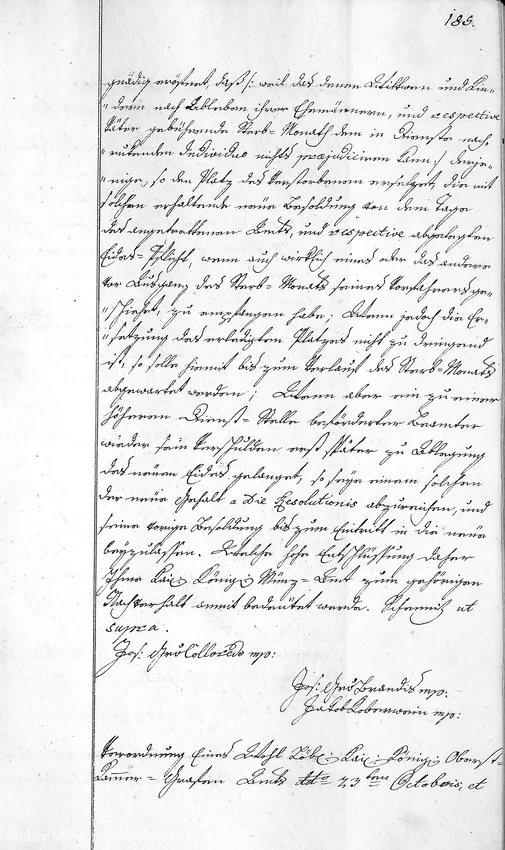 183.
gnädig eröfnet, daß /: weil das denen Wittwen und Kin-
dern nach Ableben ihrer Ehemännern, und respective
Väter gebührende Sterb-Monath dem in Dienste nach-
rukenden Individuo nichts præjudiciren kann :/ derje-
nige, so den Platz des Verstorbenen ersetzet, die mit
solchen erhaltende neüe Besoldung von dem Tage
des angetrettenen Amts, und respective abgelegten
Eides-Pflicht, wenn auch wirklich eines oder das andere
vor Ausgang des Sterb-Monats seines Vorfahrers ge-
schiehet, zu empfangen habe; Wenn jedoch die Er-
setzung des erledigten Platzes nicht zu dringend
ist, so solle hiemit bis zum Verlauf des Sterb-Monats
abgewartet werden; Wenn aber ein zu einer
höheren Dienst-Stelle beförderter Beamter
wieder sein Verschulden erst später zu Ablegung
des neüen Eides gelanget, so seye einem solchen
der neüe Gehalt a Die Resolutionis abzureichen, und
seine vorige Besoldung bis zum Eintritt in die neüe
beyzulassen. Welche hohe Entschlüssung daher
Ihme Kai: König: Münz-Amt zum gehörigen
Nachverhalt anmit bedeütet werde. Schemnitz ut
supra.
Jos: Gr. Colloredo mp:
Jos: Gr. Brandis mp:
Verordnung Eines Wohl Löbl: Kai: König: Oberst-
Kammer-Grafen Amts ddto 23ten Octobris, et